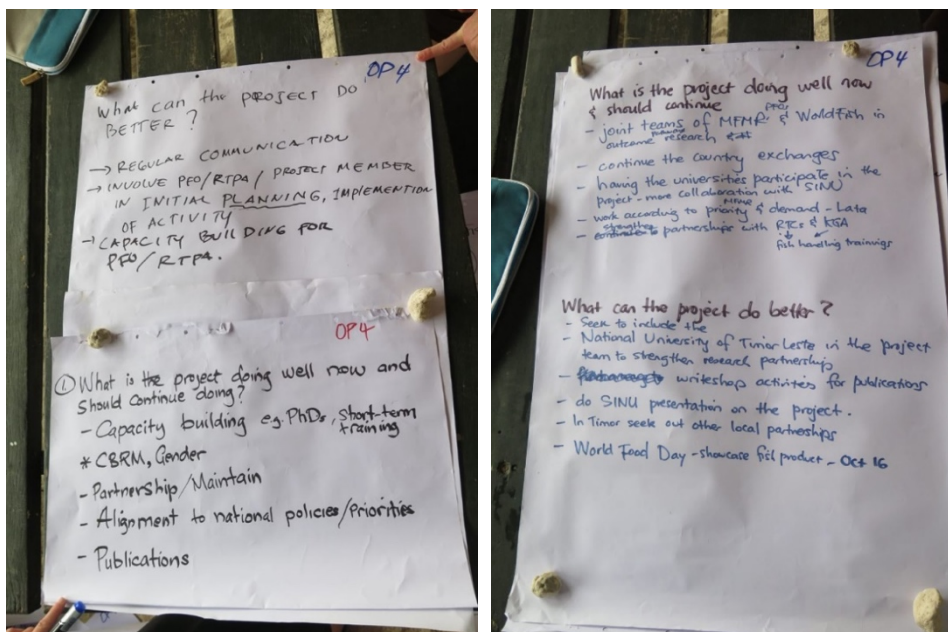 OP4
What can the PROJECT DO
BETTER ?
→ REGULAR COMMUNICATION
→ INVOLVE PFO/RTPA / PROJECT MEMBER
IN INITIAL PLANNING, IMPLEMENTION
OF ACTIVITY
→ CAPACITY BUILDING FOR
PFO/RTPA.
OP4
① What is the project doing well now and
should continue doing?
- Capacity building e.g. PhDs, short-term
training
* CBRM, Gender
- Partnership/Maintain
- Alignment to national policies/Priorities
- Publications
OP4
What is the project doing well now
& should continue
PFOs
- joint teams of MFMR & WorldFish in
outcome research
- continue the country exchanges
- having the universities participate in the
project - more collaboration with SINU
MFMR
- work according to priority & demand - Lata
strengthen
- partnerships with RTCs & KGA
fish handling trainings
What can the project do better ?
- Seek to include the
- National University of Timor Leste in the project
team to strengthen research partnership
- writeshop activities for publications
- do SINU presentation on the project.
- In Timor seek out other local partneships
- World Food Day - showcase fish product - Oct 16